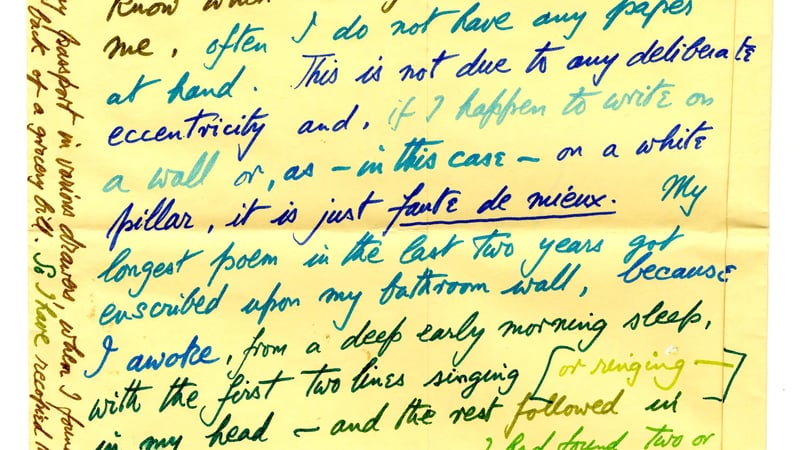 know when
me, often I do not have any paper
at hand. This is not due to any deliberate
eccentricity and, if I happen to write on
a wall or, as – in this case – on a white
pillar, it is just faute de mieux. My
longest poem in the last two years got
enscribed upon my bathroom wall, because
I awoke, from a deep early morning sleep,
with the first two lines singing [or ringing –]
in my head – and the rest followed in –
I had found two or
my passport in various drawers, when I found
back of a grocery bill. So I have recopied